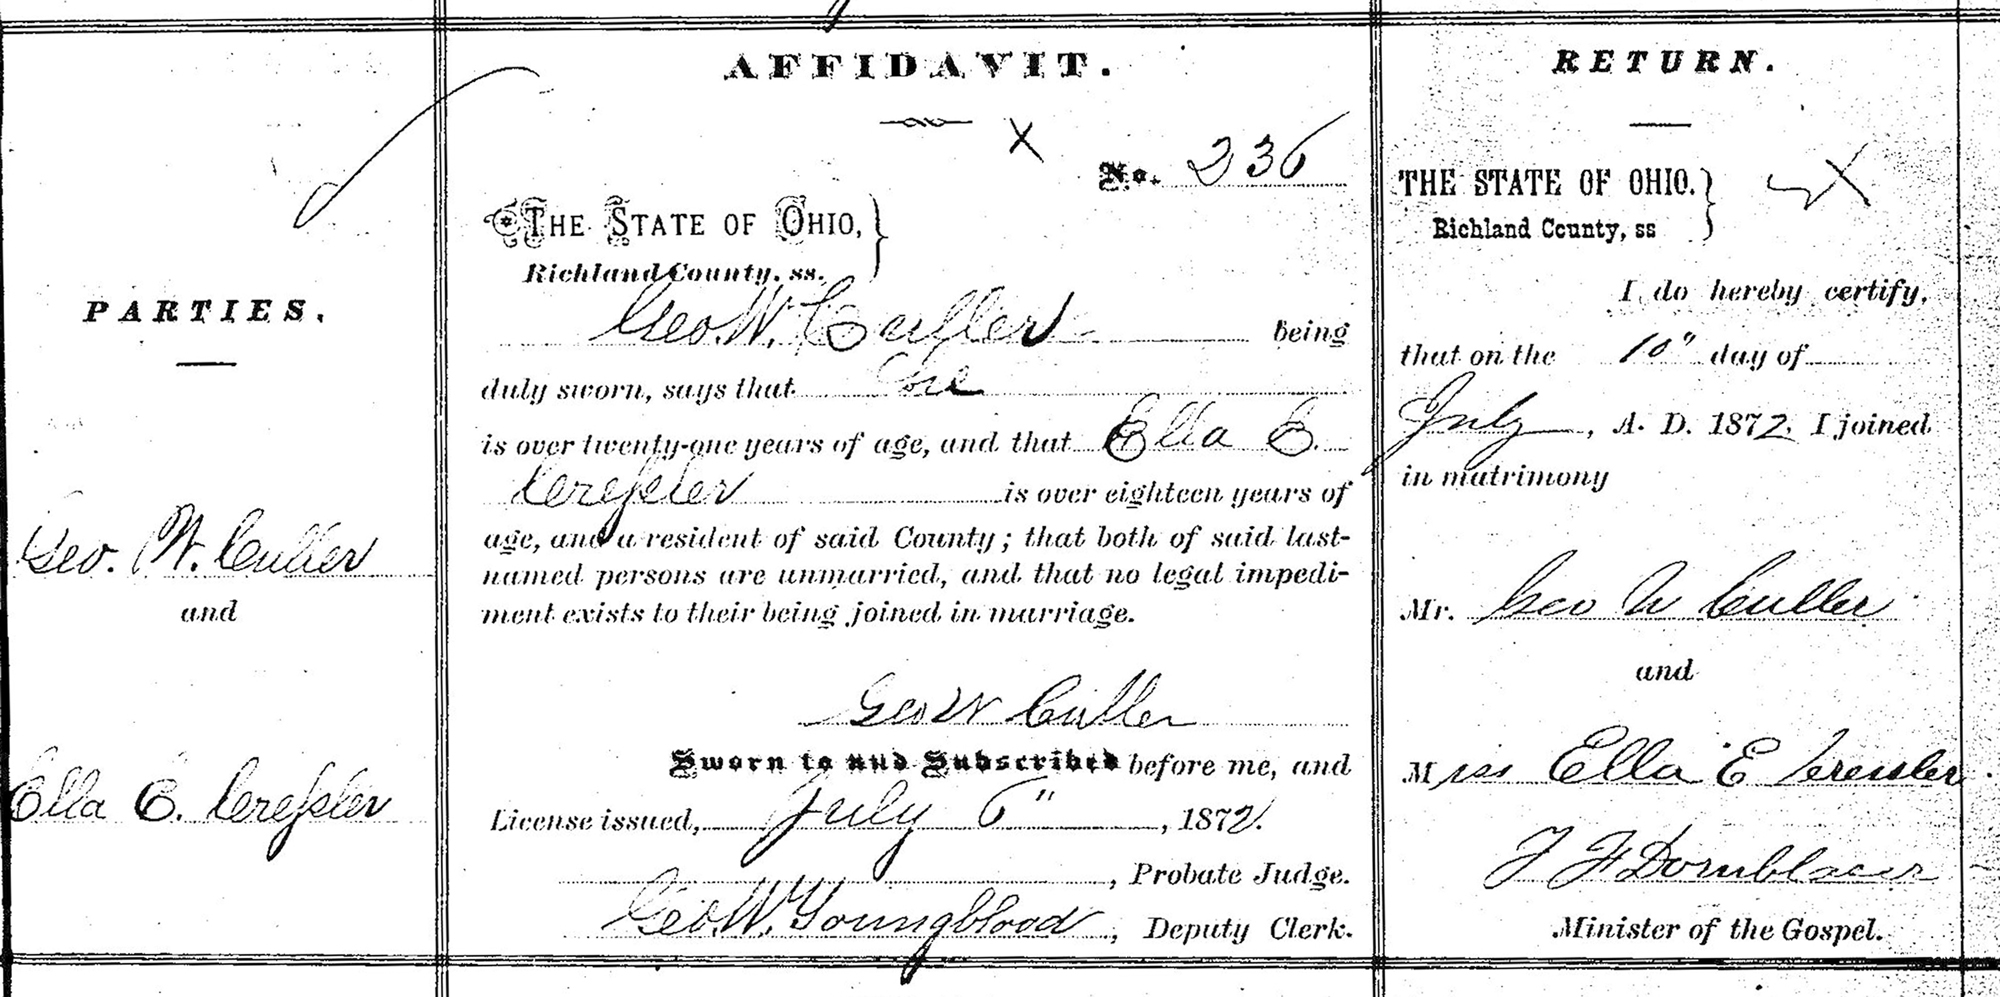 PARTIES.
Geo. W. Culler
and
Ella E. Creſsler
AFFIDAVIT.
X
No. 236
THE STATE OF OHIO,
Richland County, ss.
Geo. W. Culler being
duly sworn, says that he
is over twenty-one years of age, and that Ella E.
Creſsler is over eighteen years of
age, and a resident of said County; that both of said last-
named persons are unmarried, and that no legal impedi-
ment exists to their being joined in marriage.
Geo W Culler
Sworn to and Subscribed before me, and
License issued, July 6", 1872.
, Probate Judge.
Geo. W. Youngblood, Deputy Clerk.
RETURN.
THE STATE OF OHIO.
X
Richland County, ss
I do hereby certify,
that on the 10" day of
July, A. D. 1872, I joined
in matrimony
Mr. Geo W Culler
and
Miss Ella E Cressler
F F Dornblaser
Minister of the Gospel.